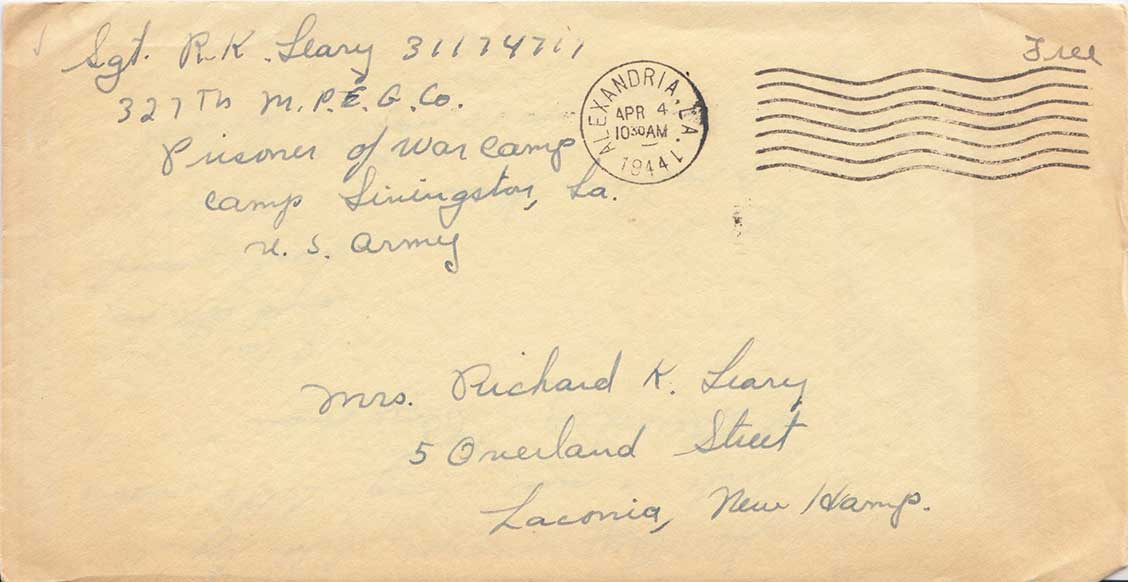 Sgt. R.K. Leary 31174717
327Th M.P.E.G. Co.
Prisoner of War Camp
Camp Livingston, La.
U.S. Army
ALEXANDRIA, LA.
APR 4
10 30 AM
1944
Free
Mrs. Richard K. Leary
5 Overland Street
Laconia, New Hamp.